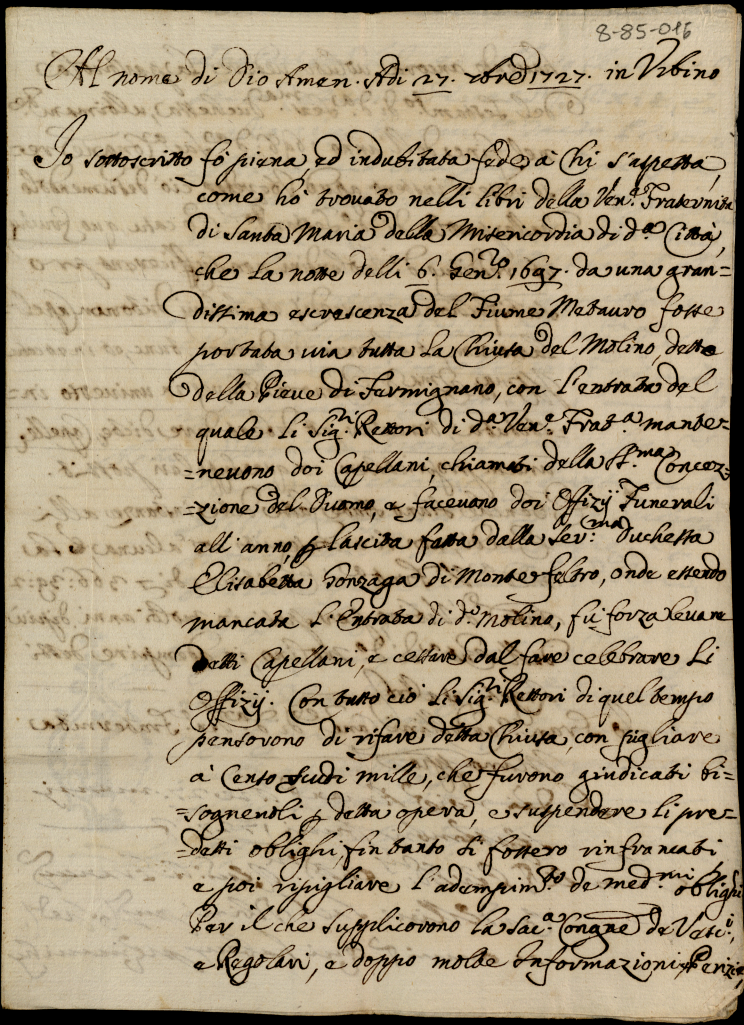 8-85-016
Al nome di Dio Amen. Adi 27. 7bre 1727. in Urbino
Io sottoscritto fò piena, ed indubitata fede à Chi s'aspetta,
come hò trovato nelli libri della Ven.e Fraternita
di Santa Maria della Misericordia di d.a Città,
che la notte delli 6. Gen.ro 1697. da una gran=
dissima escrescenza del Fiume Metauro fosse
portata via tutta la Chiusa del Molino, detto
della Pieve di Fermignano, con l'entrata del
quale li Sig.ri Rettori di d.a Ven.e Frat.a mante=
=nevono doi Capellani, chiamati della SS.ma Concez=
=zione del Duomo, e facevono doi Offizij Funerali
all'anno, p lascita fatta dalla Ser.ma Duchessa
Elisabetta Gonzaga di Monte feltro, onde essendo
mancata l'Entrata di d.o Molino, fù forza levare
detti Capellani, e cessare dal fare celebrare li
Offizij. Con tutto ciò li Sig.ri Rettori di quel tempo
pensorono di rifare detta Chiusa, con pigliare
à Cento scudi mille, che furono giudicati bi=
=sognevoli p detta opera, e suspendere li pre=
=detti oblighi fin tanto si fossero rinfrancati
e poi ripigliare l'adempim.to de med.mi oblighi
Per il che supplicorono la Sac.a Congne de Vesc.i,
e Regolari, e doppo molte Informazioni, Perizie,